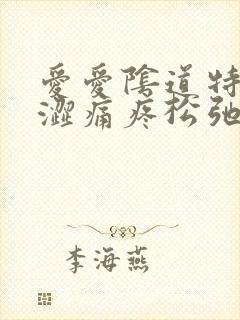 爱爱陰道特
澀痛疼松弛
李海燕